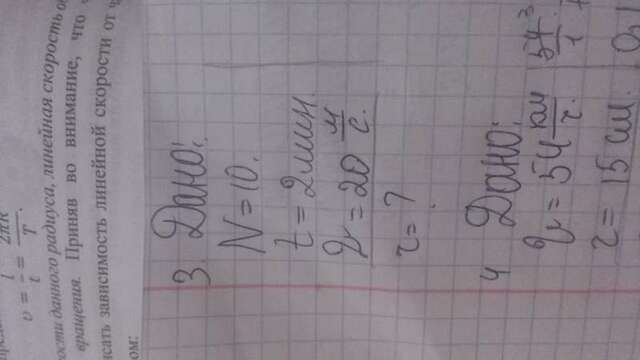 υ = l/t = 2πR/T.
ости данного радиуса, линейная скорость об
вращения. Приняв во внимание, что
исать зависимость линейной скорости от ч
ом:
3. Дано:
N = 10.
t = 2 мин.
υ = 20 м/с.
r = ?
4 Дано:
υ = 54 км/ч. 54/1
r = 15 см.